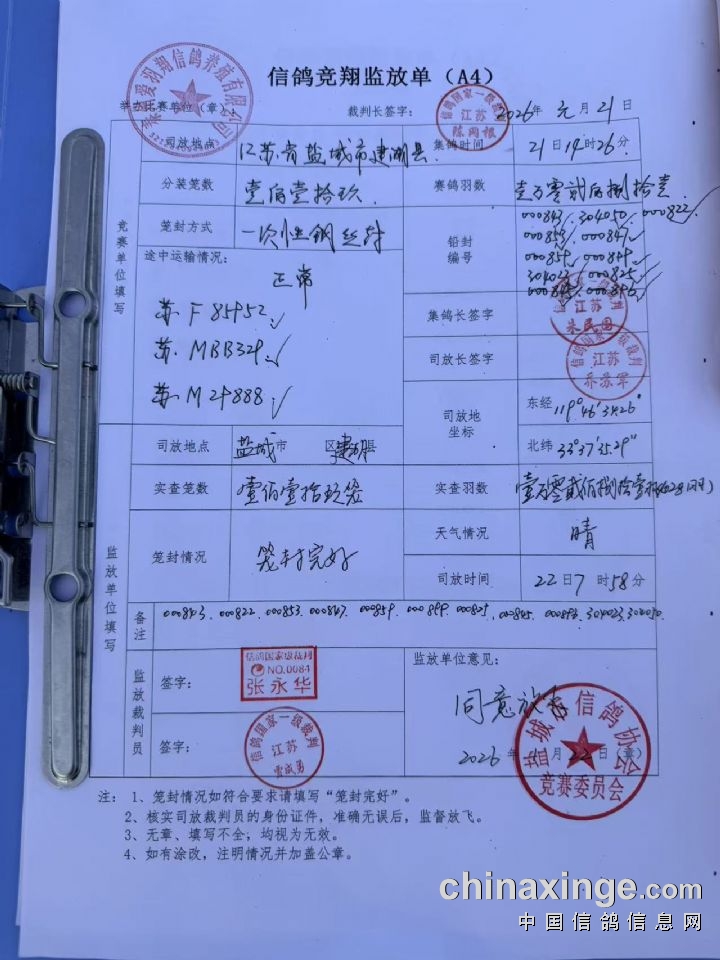 信鸽竞翔监放单（A4）
举办比赛单位（章） 裁判长签字： 2026年 元月21日
爱羽翔信鸽养殖有限公司
信鸽国家一级裁判 江苏
竞赛单位填写
司放地点 江苏省盐城市建湖县 集鸽时间 21日14时26分
分装笼数 壹佰壹拾玖 赛鸽羽数 壹万零贰佰捌拾壹
笼封方式 一次性钢丝封 铅封编号
000843 304050 000822
000853 000847
000859 000899
304023 000825
000845 000896
途中运输情况：
正常
苏F 85952
苏MBB329
苏M29888
集鸽长签字
信鸽国家一级裁判 江苏 朱民国
司放长签字
信鸽国家一级裁判 江苏 乔苏军
司放地坐标 东经 119°46′34.26″
北纬 33°37′35.29″
监放单位填写
司放地点 盐城市 区建湖县
实查笼数 壹佰壹拾玖笼 实查羽数 壹万零贰佰捌拾壹羽
笼封情况 笼封完好 天气情况 晴
司放时间 22日7时58分
备注 000843. 000822. 000853. 000847. 000859. 000899. 000825. 000845. 304023.
监放裁判员
签字： 信鸽国家级裁判 NO.0084 张永华
签字： 信鸽国家一级裁判 江苏
监放单位意见：
同意放飞
2026年 月22日（章）
盐城市信鸽协会
竞赛委员会
注： 1、笼封情况如符合要求请填写“笼封完好”。
2、核实司放裁判员的身份证件，准确无误后，监督放飞。
3、无章、填写不全，均视为无效。
4、如有涂改，注明情况并加盖公章。
chinaxinge.com
中国信鸽信息网